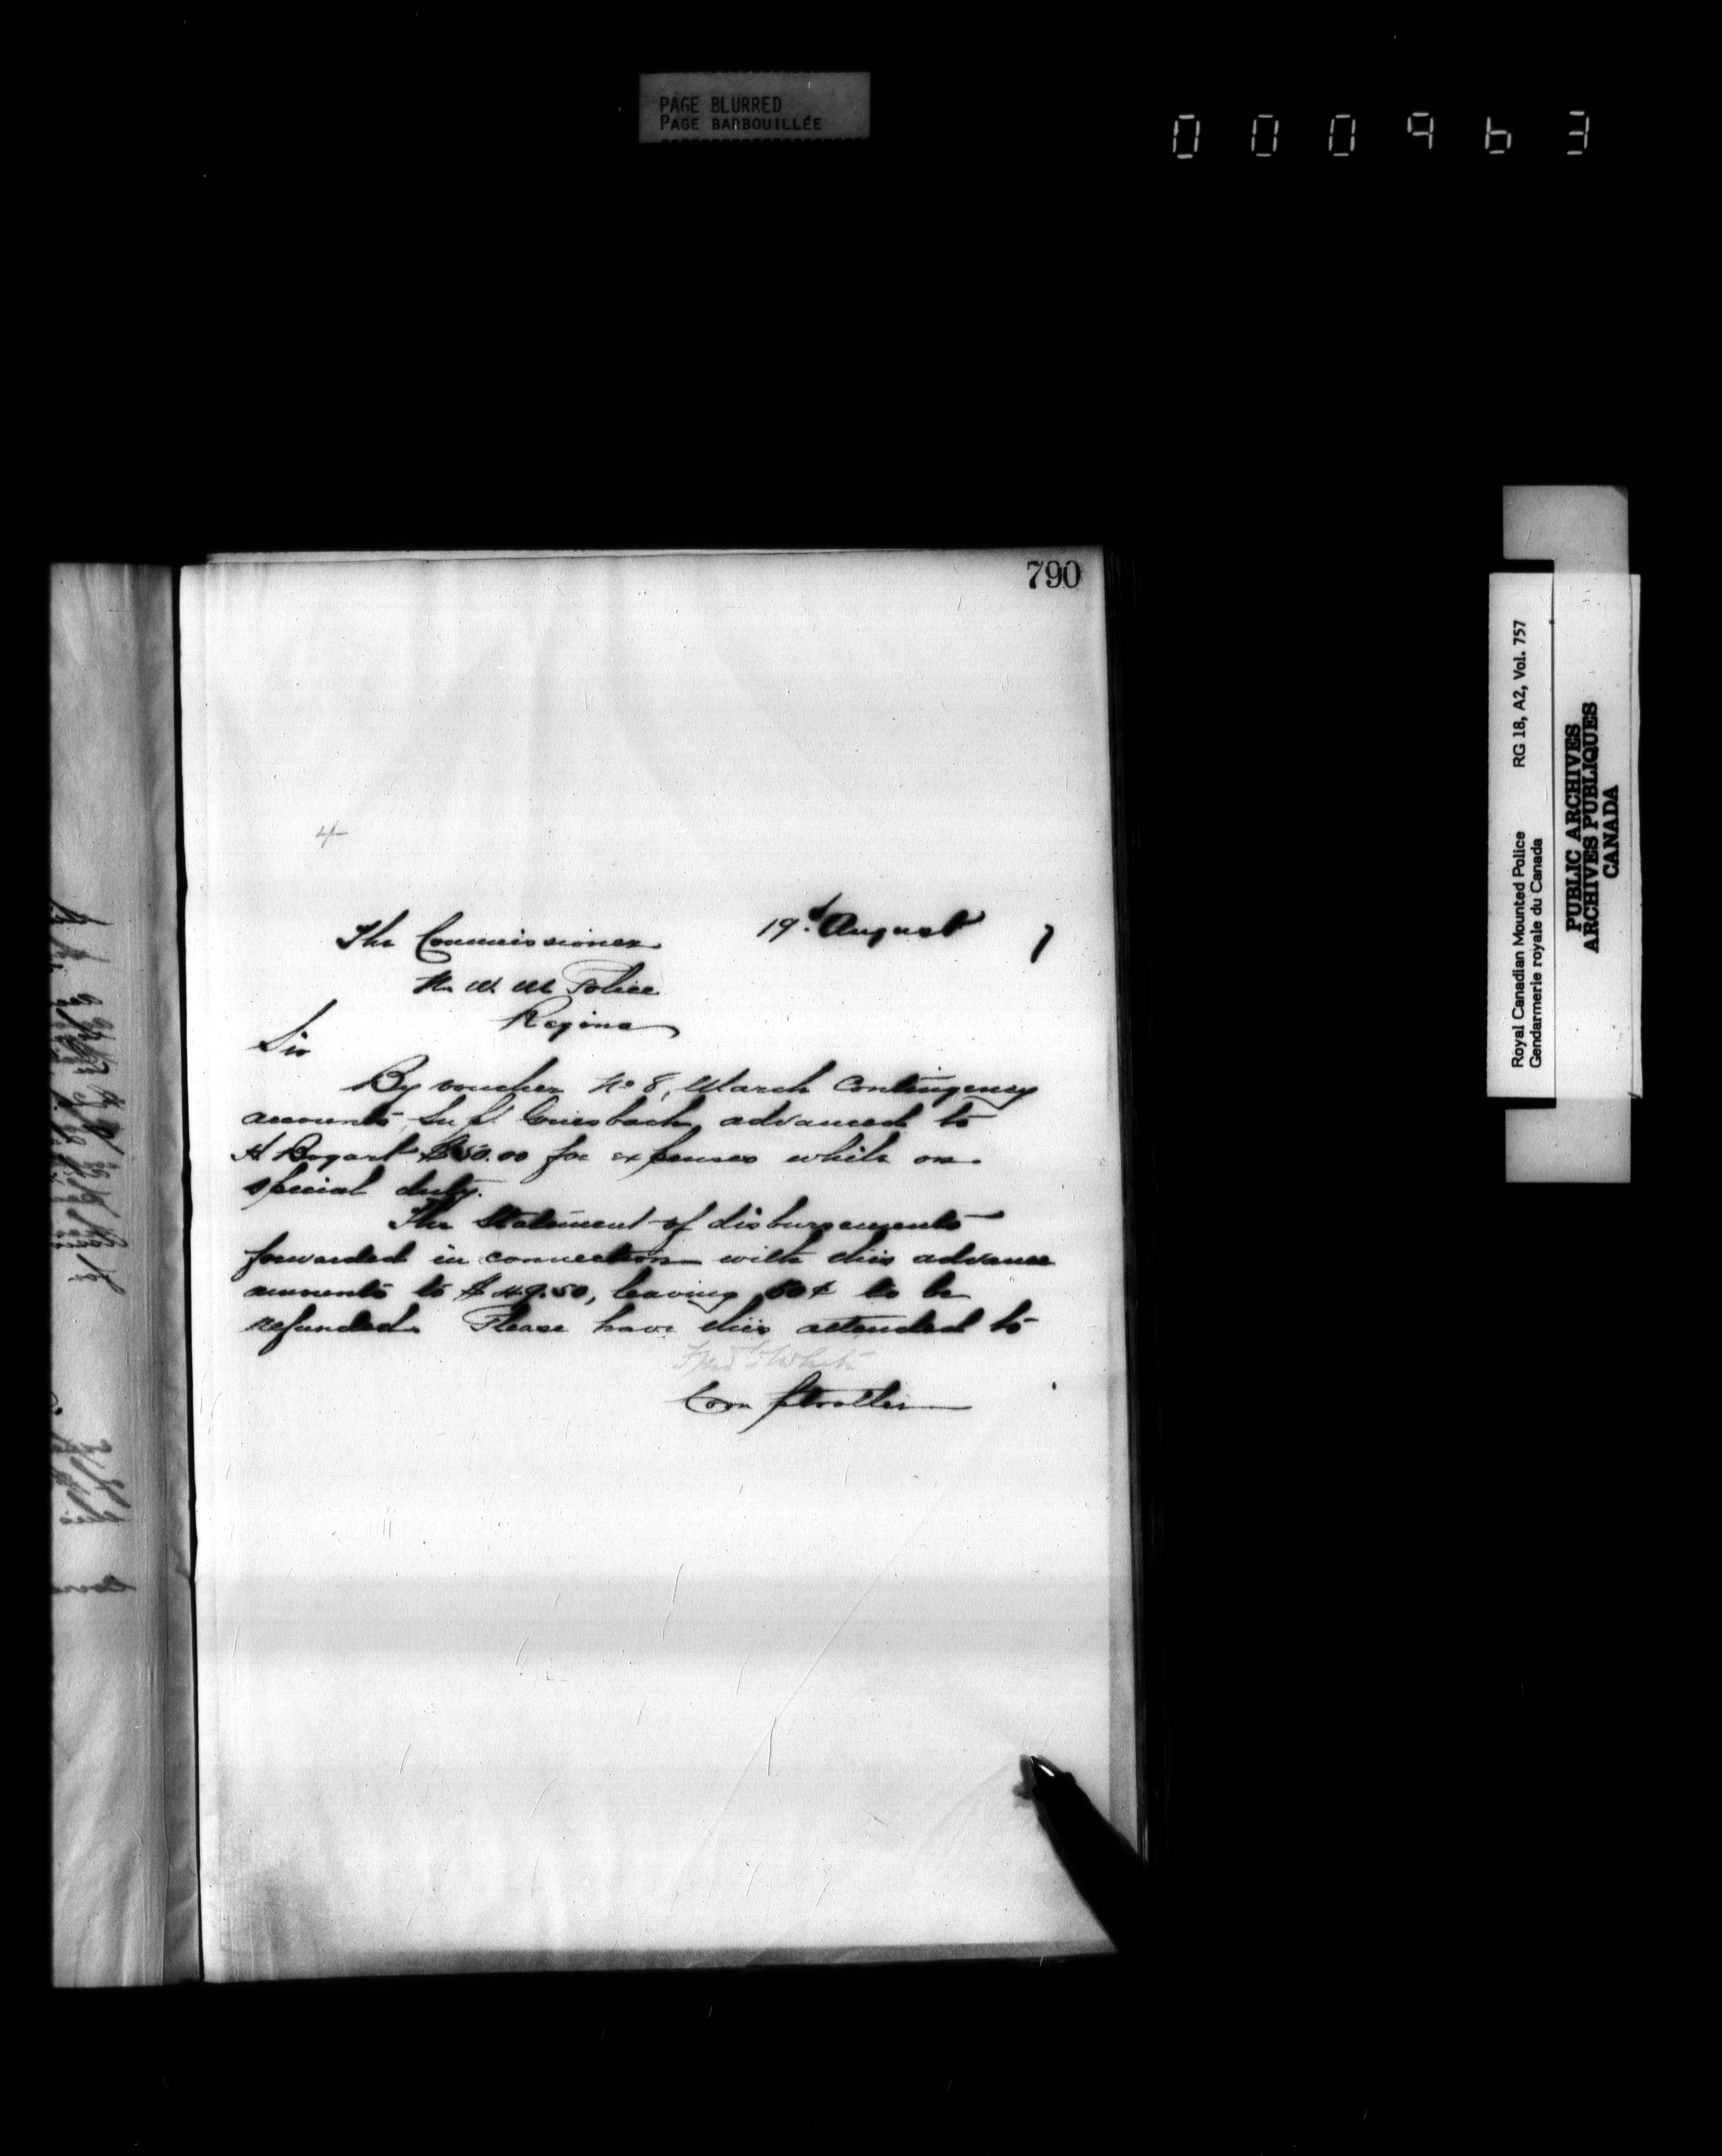 PAGE BLURRED
PAGE BARBOUILLÉE
000963
790
4
19th August 7
The Commissioner
N. W. M. Police
Regina
Sir
By voucher No 8, March Contingency
accounts, Supt. Griesbach advanced to
A Bogart $50.00 for expenses while on
special duty.
The statement of disbursements
forwarded in connection with this advance
amounts to $49.50, leaving 50¢ to be
refunded. Please have this attended to
Fred White
Comptroller
Royal Canadian Mounted Police RG 18, A2, Vol. 757
Gendarmerie royale du Canada
PUBLIC ARCHIVES
ARCHIVES PUBLIQUES
CANADA